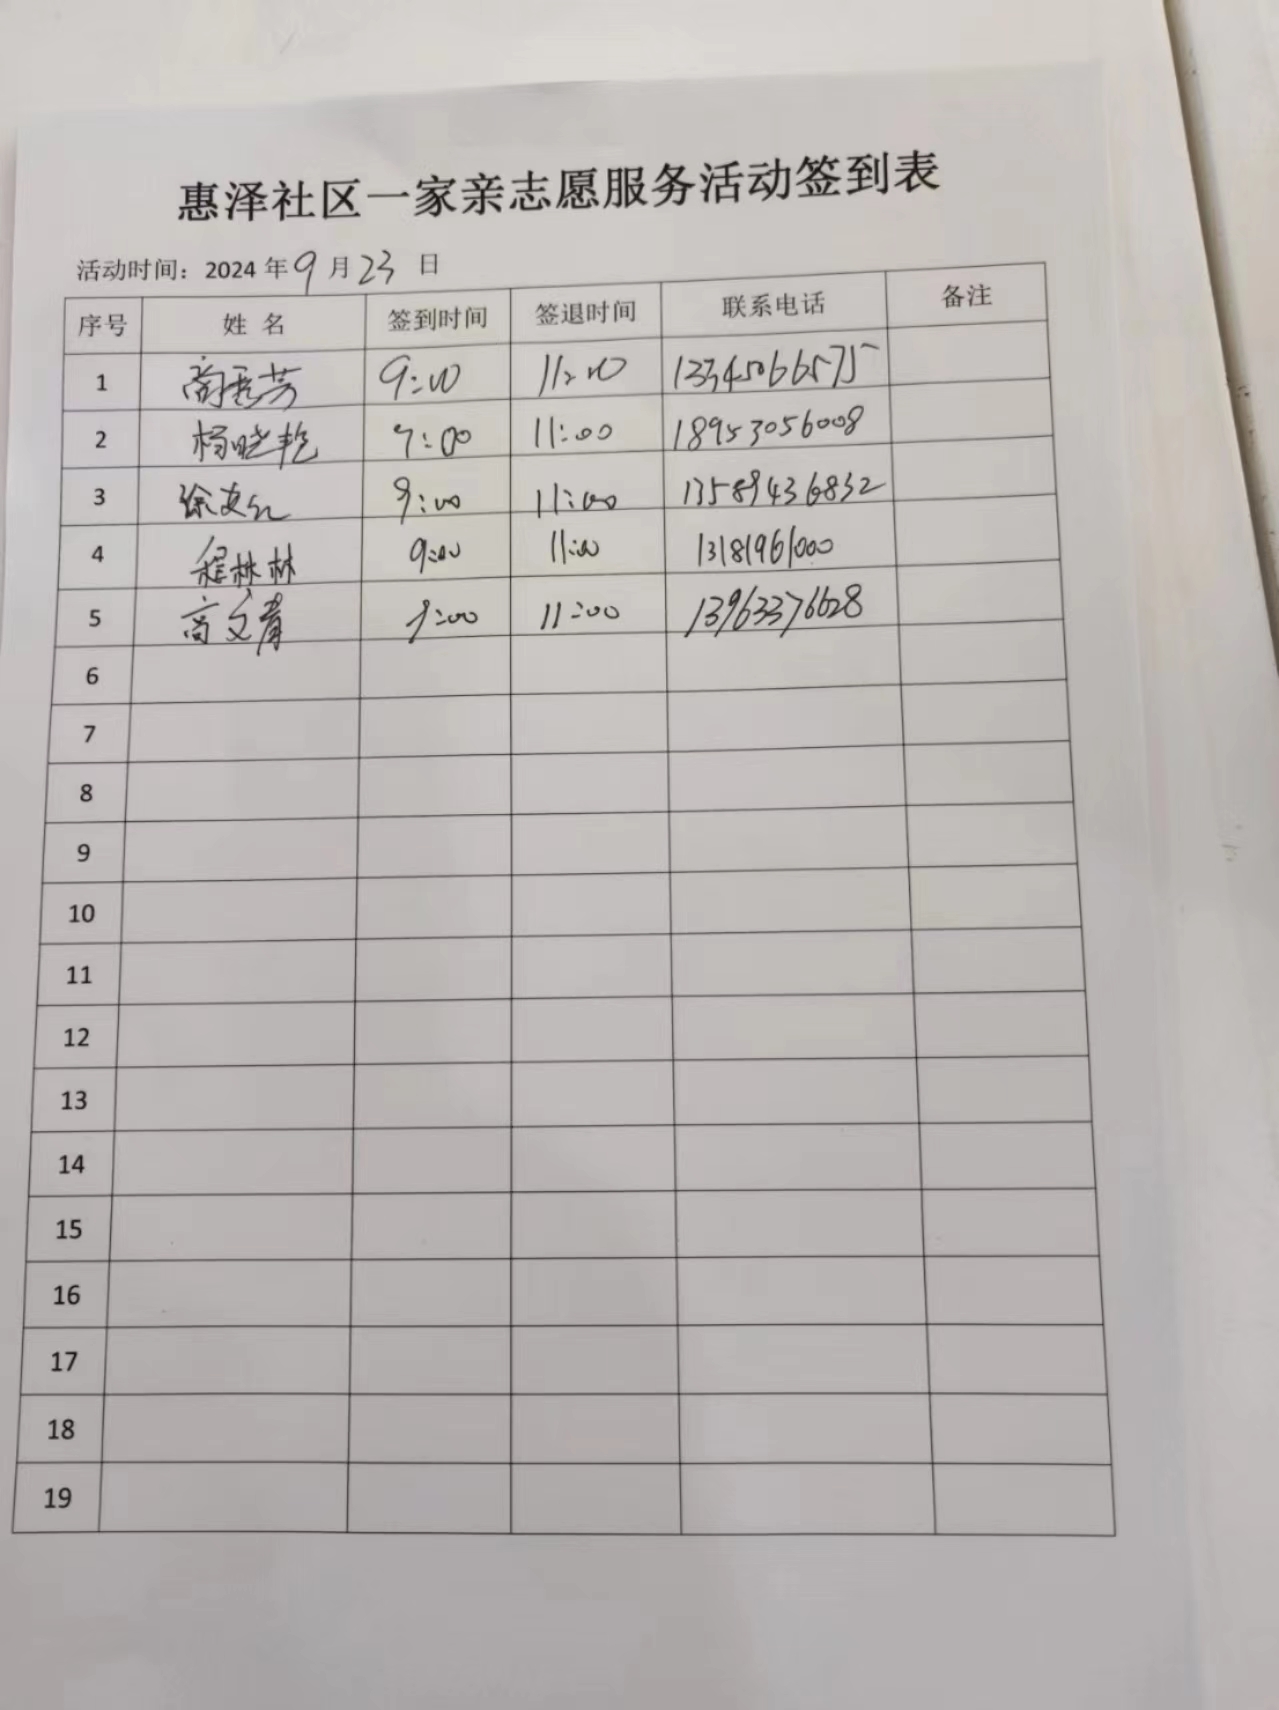 惠泽社区一家亲志愿服务活动签到表
活动时间：2024 年 9 月 23 日
序号 姓 名 签到时间 签退时间 联系电话 备注
1 9:00 11:00
2 杨晓艳 9:00 11:00 18953056008
3 9:00 11:00 13589436832
4 程林林 9:00 11:00 13181961000
5 高文青 9:00 11:00 13963376628
6
7
8
9
10
11
12
13
14
15
16
17
18
19